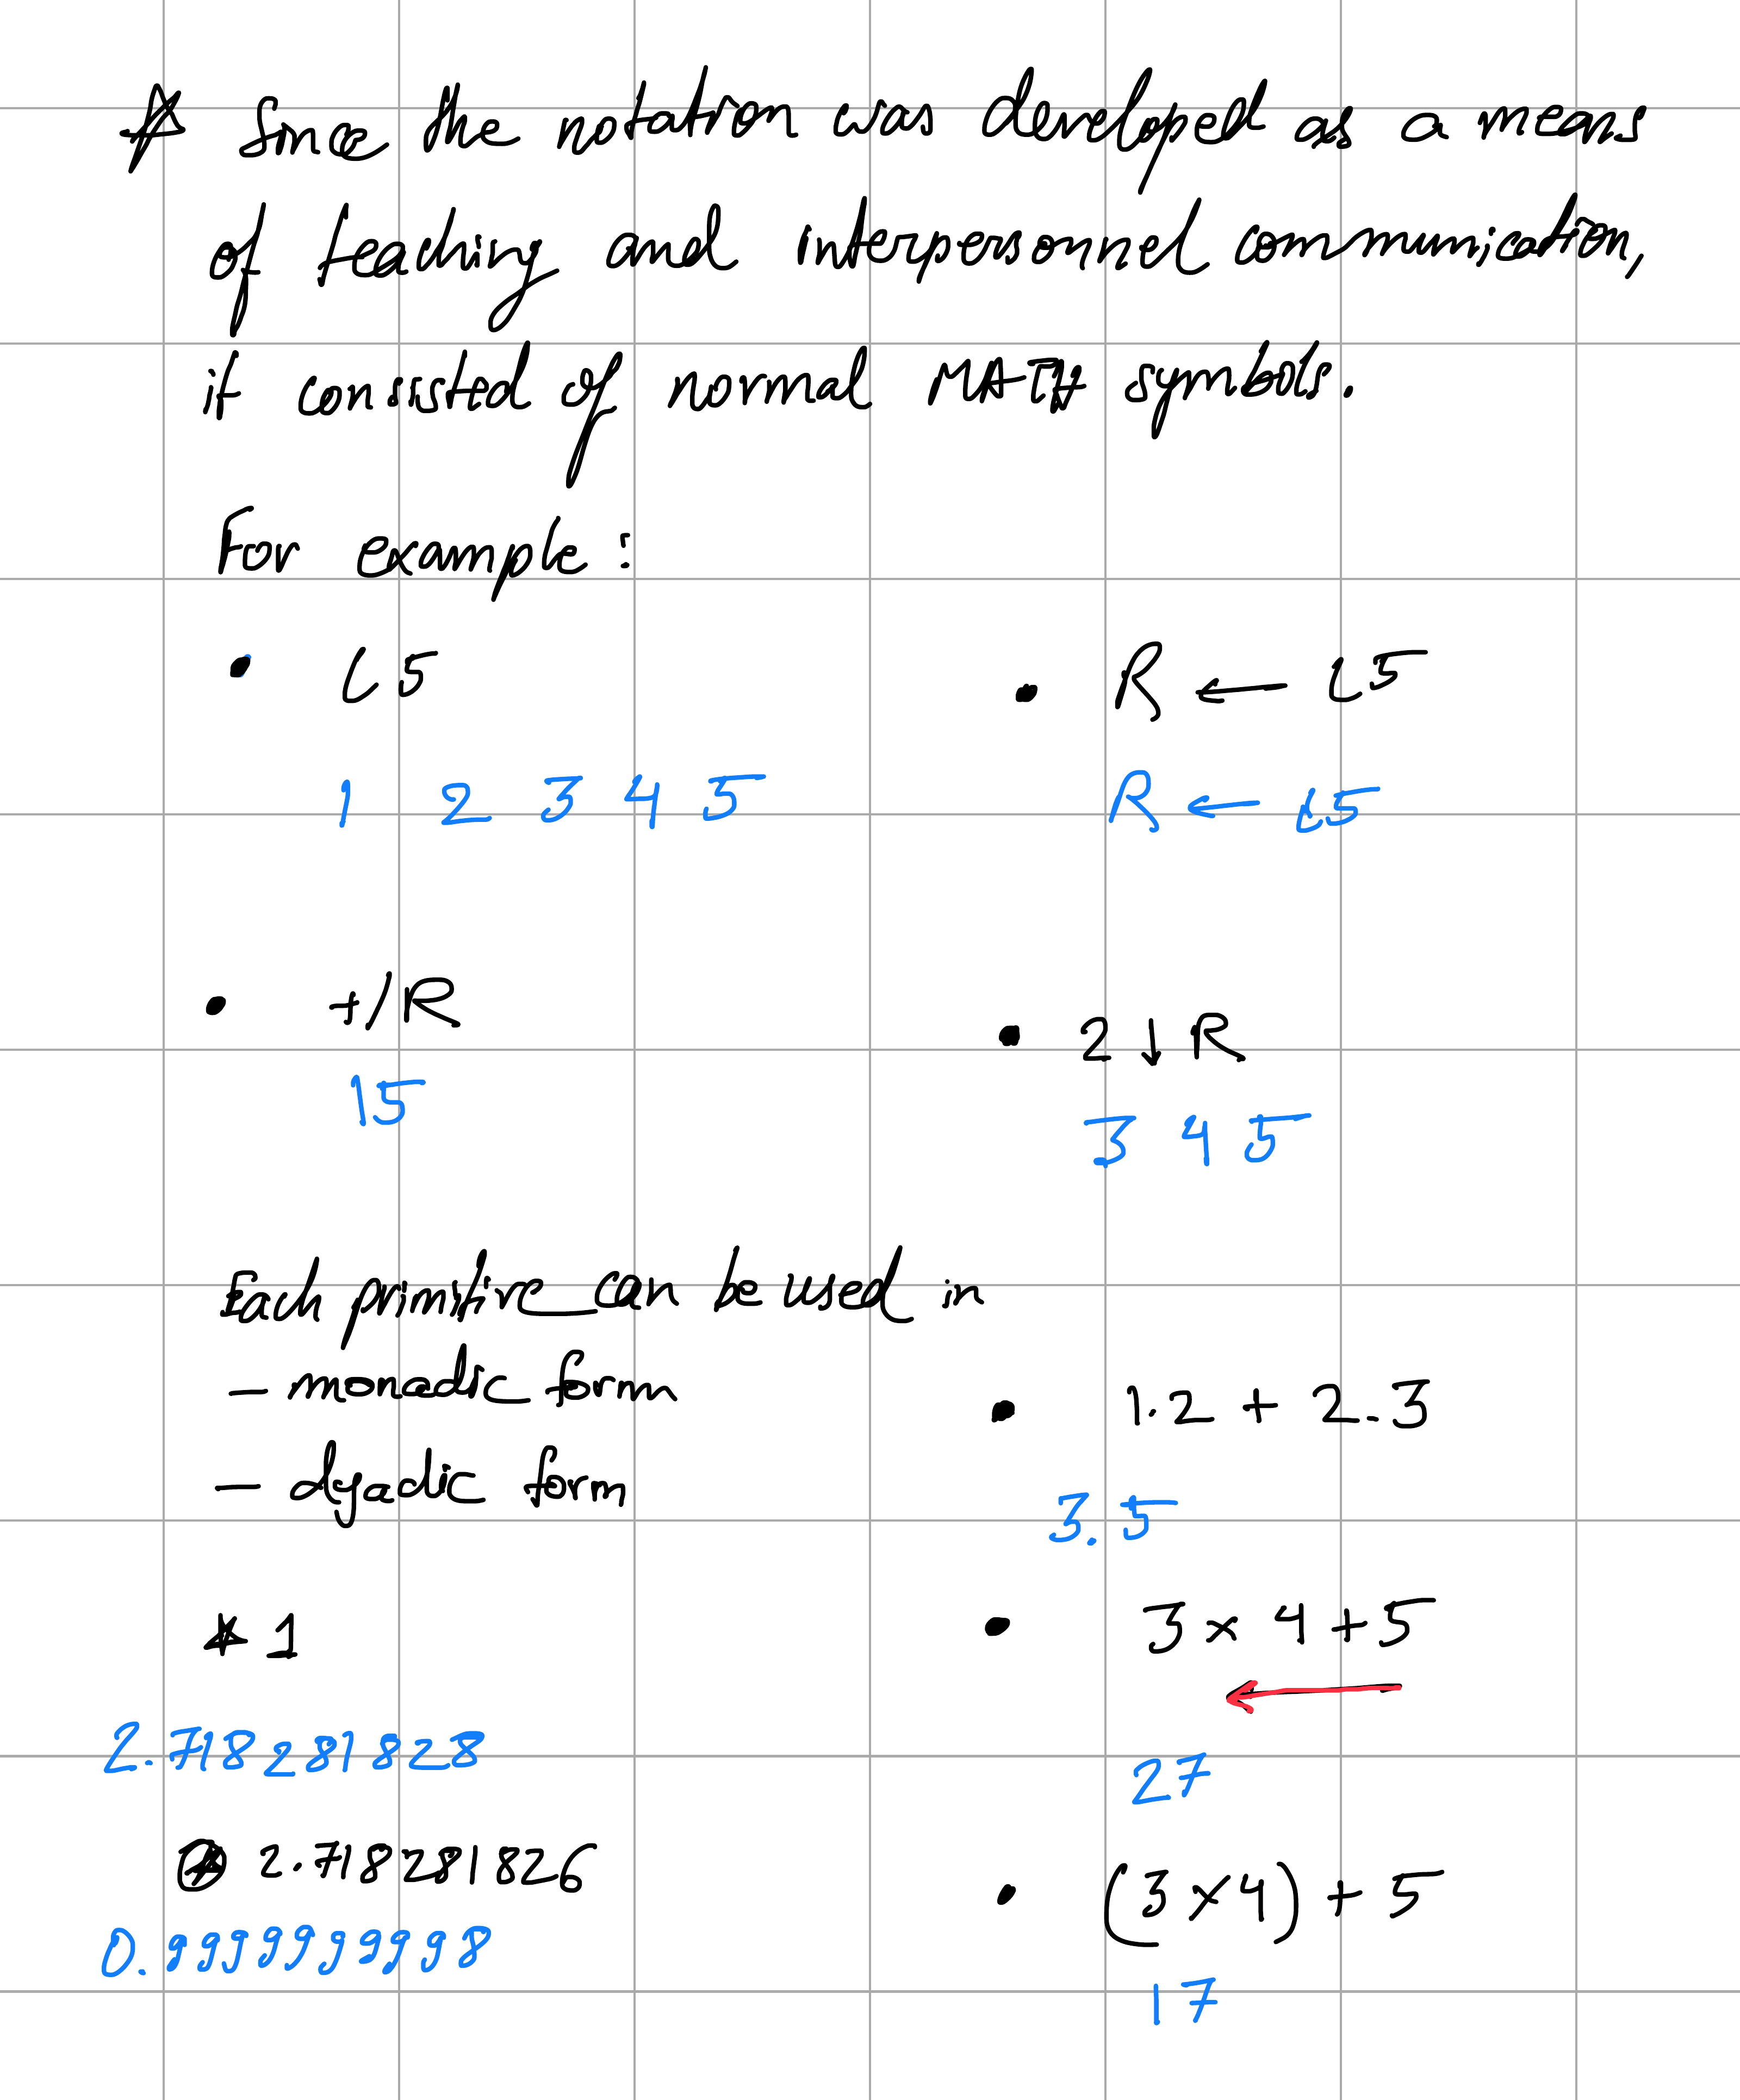 * Since the notation was developed as a means
of teaching and interpersonnel communication,
it consisted of normal MATH symbols.
For example:
• ⍳5
1 2 3 4 5
• R ← ⍳5
R ← ⍳5
• +/R
15
• 2↓R
3 4 5
Each primitive can be used in
– monadic form
– dyadic form
*1
2.718281828
⍟ 2.718281826
0.9999999998
• 1.2 + 2.3
3.5
• 3 × 4 + 5
←
27
• (3×4) + 5
17